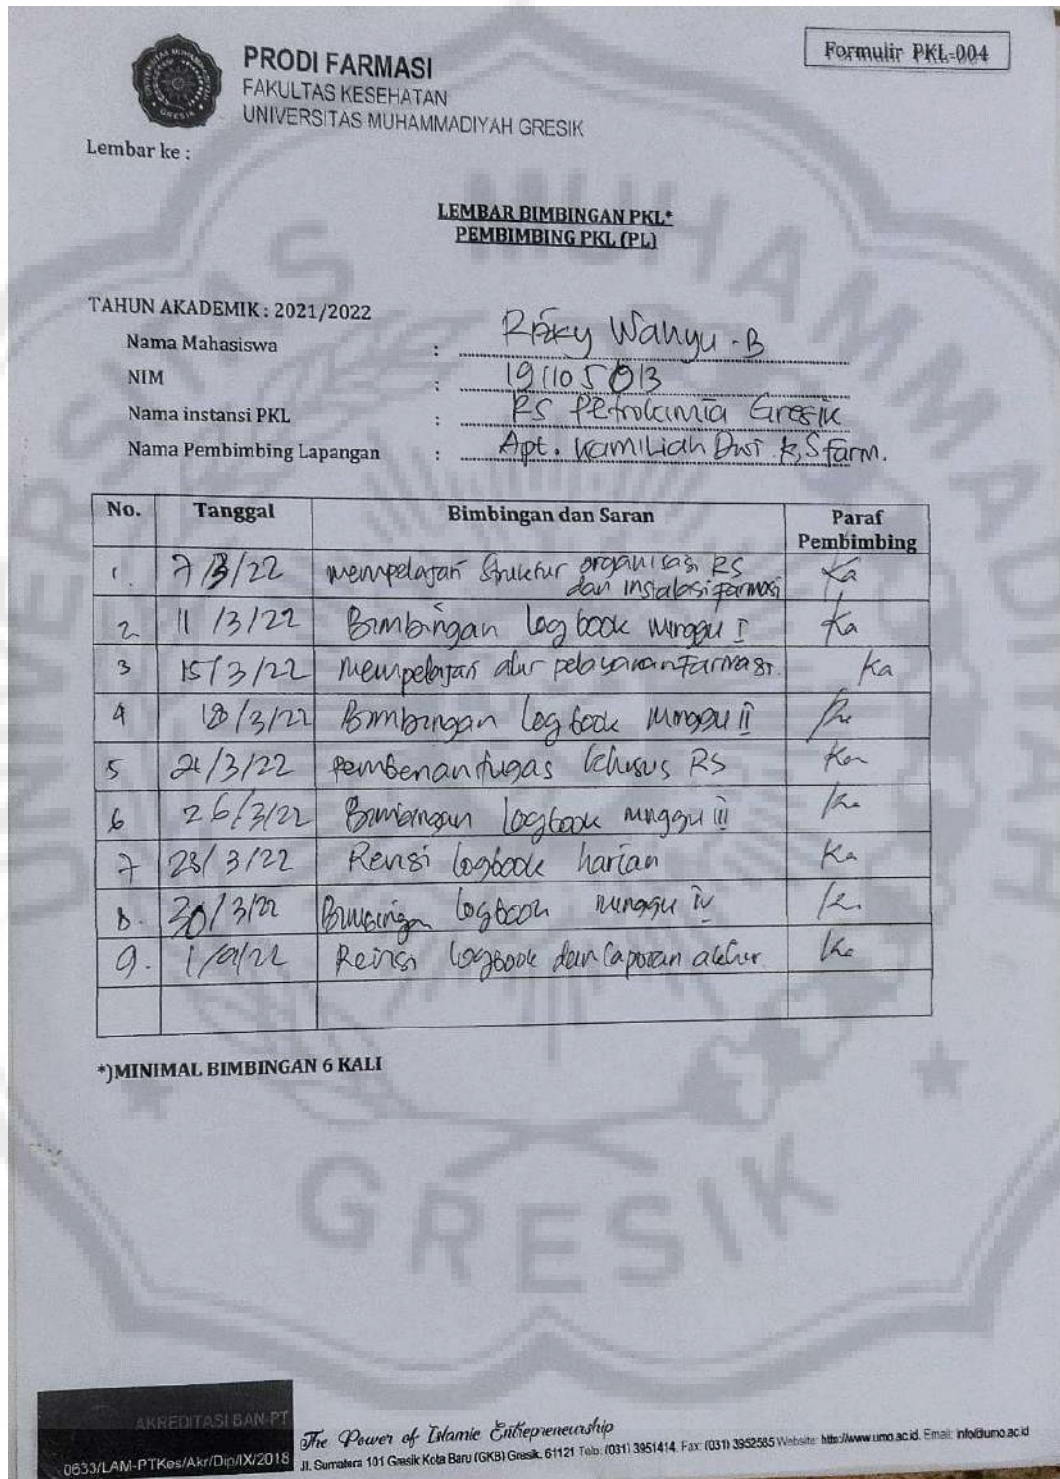 PRODI FARMASI
FAKULTAS KESEHATAN
UNIVERSITAS MUHAMMADIYAH GRESIK
Formulir PKL-004
Lembar ke :
LEMBAR BIMBINGAN PKL*
PEMBIMBING PKL (PL)
TAHUN AKADEMIK : 2021/2022
Nama Mahasiswa : Rizky Wahyu . B
NIM : 191105013
Nama instansi PKL : RS Petrokimia Gresik
Nama Pembimbing Lapangan : Apt. Kamiliah Dwi . K, S farm.
No. Tanggal Bimbingan dan Saran Paraf Pembimbing
1. 7/3/22 mempelajari Struktur organisasi RS dan instalasi farmasi Ka
2 11/3/22 Bimbingan log book minggu I Ka
3 15/3/22 Mempelajari alur pelayanan Farmasi Ka
4 18/3/22 Bimbingan Log book minggu II
5 21/3/22 pemberian tugas khusus RS
6 26/3/22 Bimbingan Logbook minggu III
7 28/3/22 Revisi logbook harian Ka
8. 30/3/22 Bimbingan logbook minggu IV
9. 1/4/22 Revisi logbook dan laporan akhir
*)MINIMAL BIMBINGAN 6 KALI
UNIVERSITAS MUHAMMADIYAH
GRESIK
AKREDITASI BAN-PT
0633/LAM-PTKes/Akr/Dip/IX/2018
The Power of Islamic Entrepreneurship
Jl. Sumatera 101 Gresik Kota Baru (GKB) Gresik. 61121 Telp: (031) 3951414. Fax: (031) 3952585 Website: http://www.umg.ac.id. Email: info@umg.ac.id